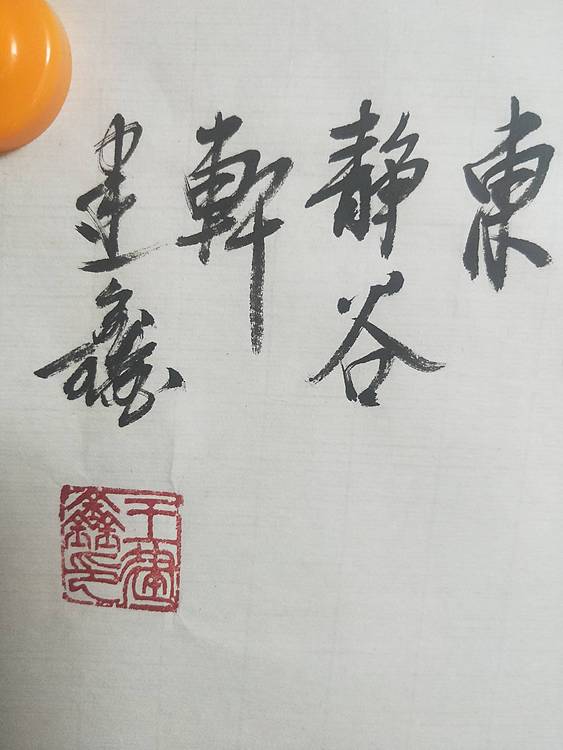 東
静谷
軒
建鑫
于建鑫印